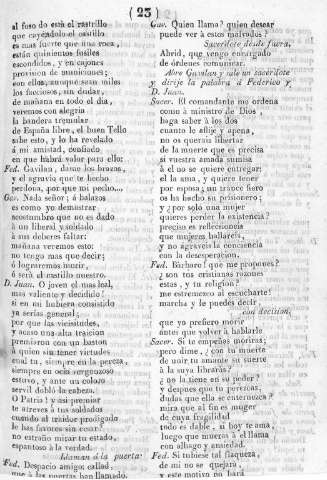 (23)
al foso do está el rastrillo
que cayéndolo el castillo
es mas fuerte que una roca,
están quinientos fusiles
escondidos, y en cajones
provision de municiones;
son ellos, aunque sean miles
los facciosos, sin dudar,
de mañana en todo el dia,
veremos con alegria
la bandera tremolar
de España libre, el buen Tello
sabe esto, y lo ha revelado
á mi amistad, confiado
en que habrá valor para ello:
Fed. Gavilan, dame los brazos,
y el agravio que te hecho
perdona, por que mi pecho....
Gav. Nada señor; á balazos
es como yo demostrar
acostumbro que no es dado
á un liberal y soldado
á sus deberes faltar:
mañana veremos esto:
no tengo mas que decir;
ó lograremos morir,
ó será el castillo nuestro.
D. Juan. O joven el mas leal,
mas valiente y decidido!
si en mi hubiera consistido
ya serias general;
por que las vicisitudes,
y acaso una alta traicion
premiaron con un baston
á quien sin tener virtudes
cual tú, siempre en la pereza,
siempre en ocio vergonzoso
estuvo, y ante un coloso
servil dobló la cabeza.
O Patria! y asi premiar
te atreves á tus soldados
cuando al traidor prodigado
le has favores sin cesar?
no estraño mirar tu estado,
espantoso á la verdad.
Llaman á la puerta:
Fed. Despacio amigos callad,
que á las puertas han llamado.
Gav. Quien llama? quien desear
puede ver á estos malvados?
Sacerdote desde fuera,
Abrid, que vengo encargado
de órdenes comunicar.
Abre Gavilan y sale un sacerdote
y dirije la palabra á Federico y
D. Juan.
Sacer. El comandante me ordena
como á ministro de Dios,
haga saber á los dos
cuanto le aflije y apena,
no os querais libertar
de la muerte que es precisa
si vuestra amada sumisa
á el no se quiere entregar:
el la ama, y quiere tener
por esposa; un tranco fiero
os ha hecho su prisionero;
y ¿por solo una muger
quieres perder la existencia?
preciso es reflecciones
que mugeres hallareis,
y no agraveis la conciencia
con la desesperacion.
Fed. Bárbaro! que me propones?
¿son tus cristianas razones
estas, y tu religion?
me estremezco al escucharte!
marcha y le puedes decir,
con decision,
que yo prefiero morir
antes que volver á hablarle
Sacer. Si te empeñas moriras;
pero dime, ¿con tu muerte
de unir tu amante su suerte
á la suya librarás?
¿no la tiene en su poder?
y despues que tú perezcas,
dudas que ella se enternezca?
mira que al fin es muger
de cuya fragilidad
todo es dable, si hoy te ama,
luego que mueras á el llama
con alhago y ansiedad.
Fed. Si tubiese tal flaqueza,
de mi no se quejará,
y este motivo no hará